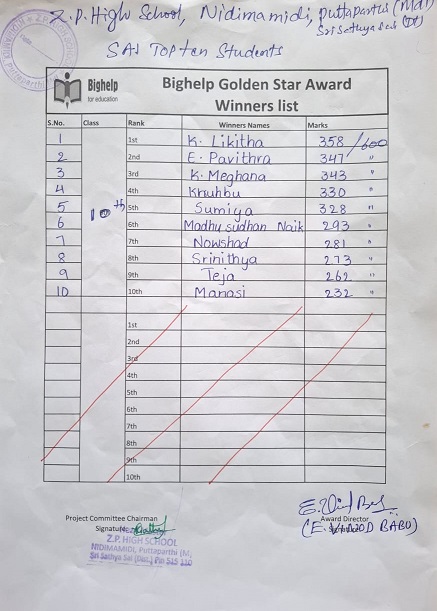 Z.P. High School, Nidimamidi, Puttaparthi (Mdl)
Sri Sathya Sai (Dt)
SAI Top ten Students
Bighelp
for education
Bighelp Golden Star Award
Winners list
S.No. Class Rank Winners Names Marks
1 1st K. Likitha 358/600
2 2nd E. Pavithra 347 "
3 3rd K. Meghana 343 "
4 4th Khuhbu 330 "
5 10th 5th Sumiya 328 "
6 6th Madhu sudhan Naik 293 "
7 7th Nowshad 281 "
8 8th Srinithya 273 "
9 9th Teja 262 "
10 10th Manasi 232 "
1st
2nd
3rd
4th
5th
6th
7th
8th
9th
10th
Project Committee Chairman
Signature
Award Director
(E. VINOD BABU)
Z.P. HIGH SCHOOL
NIDIMAMIDI, Puttaparthi (M,
Sri Sathya Sai (Dist.) Pin 515 110